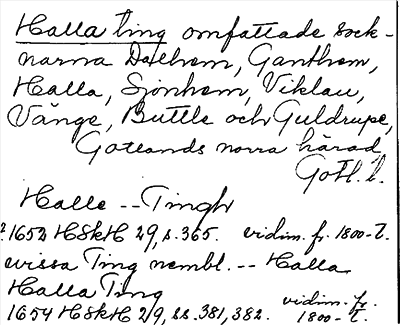 Halla ting omfattade sock-
narna Dalhem, Ganthem,
Halla, Sjonhem, Viklau,
Vänge, Buttle och Guldrupe,
Gotlands norra härad,
Gotl. l.
Halle -- Tingh
1652 HSkH 29, s. 365. vidim. fr. 1800-t.
wissa Ting nembl. -- Halla
Halla Ting
1654 HSkH 29, ss. 381, 382. vidim. fr.
1800-t.